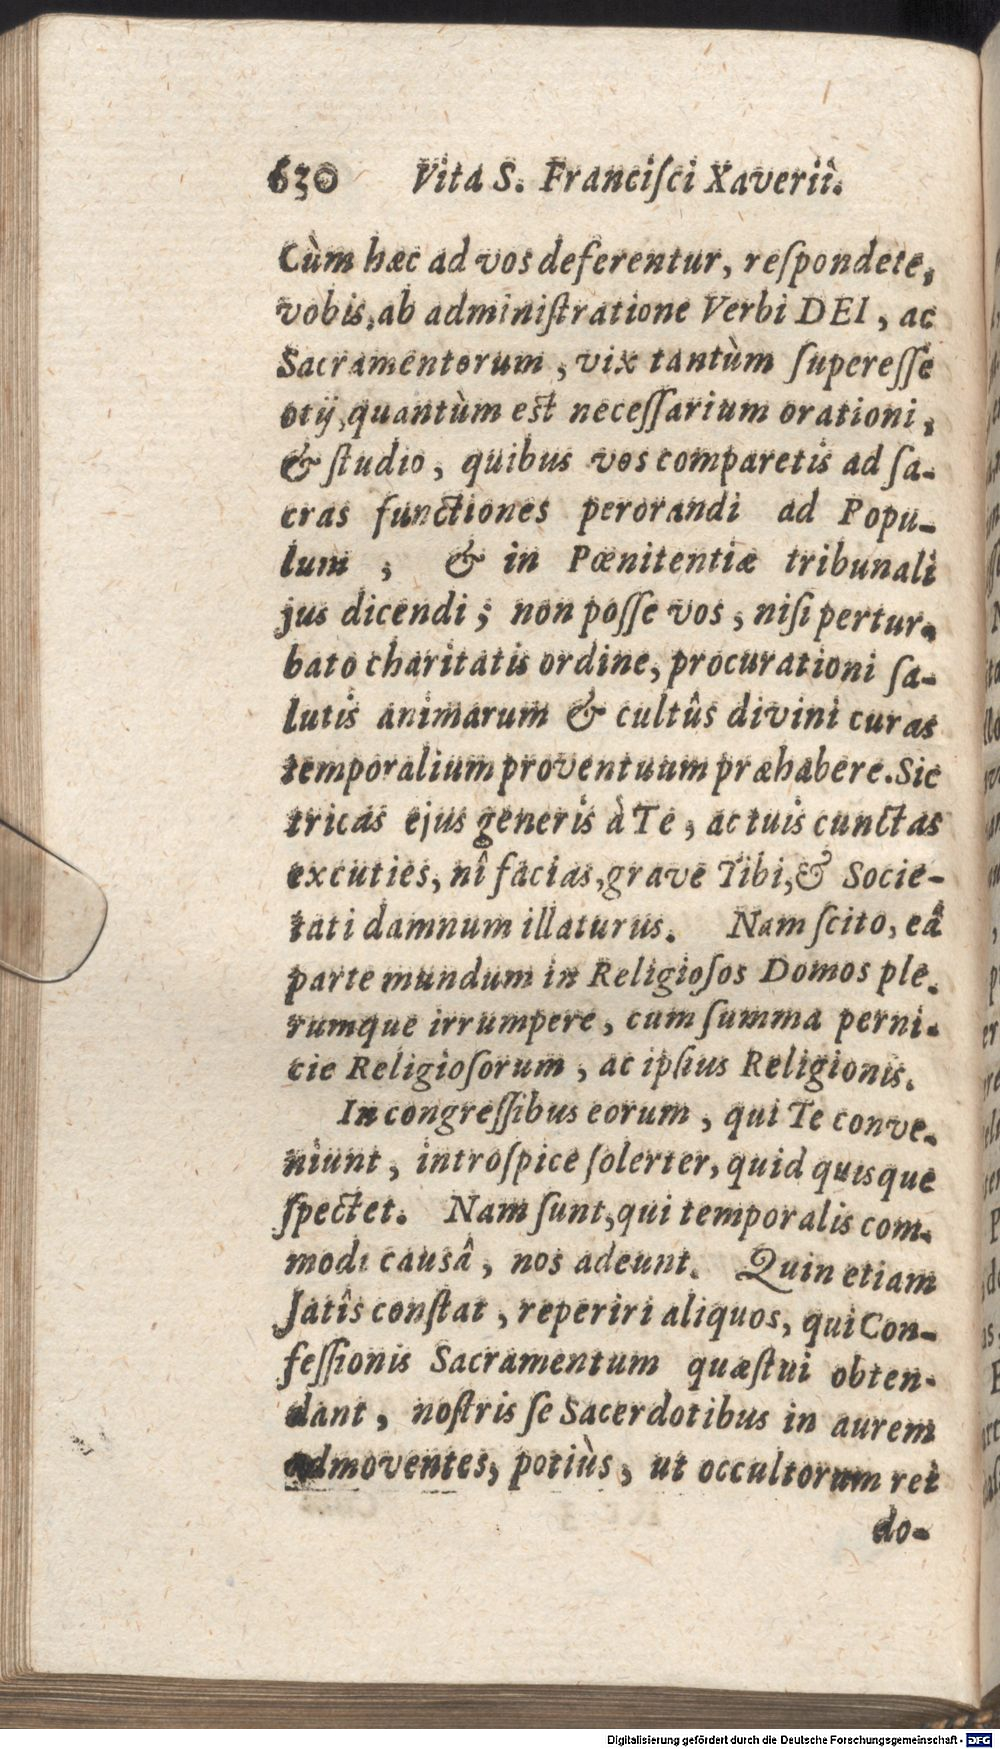 630 Vita S. Franciſci Xaverii.
Cùm hæc ad vos deferentur, reſpondete,
vobis, ab adminiſtratione Verbi DEI, ac
Sacramentorum, vix tantùm ſupereſſe
otij, quantùm est neceſſarium orationi,
& ſtudio, quibus vos comparetis ad ſa-
cras functiones perorandi ad Popu-
lum, & in Pœnitentiæ tribunali
jus dicendi; non poſſe vos, niſi pertur-
bato charitatis ordine, procurationi ſa-
lutis animarum & cultûs divini curas
temporalium proventuum præhabere. Sic
tricas ejus generis à Te, ac tuis cunctas
excuties, nî facias, grave Tibi, & Socie-
tati damnum illaturus. Nam ſcito, eâ
parte mundum in Religioſos Domos ple-
rumque irrumpere, cum ſumma perni-
cie Religioſorum, ac ipſius Religionis.
In congreſſibus eorum, qui Te conve-
niunt, introſpice ſolerter, quid quisque
ſpectet. Nam ſunt, qui temporalis com-
modi causâ, nos adeunt. Quin etiam
ſatîs conſtat, reperiri aliquos, qui Con-
feſſionis Sacramentum quæſtui obten-
dant, noſtris ſe Sacerdotibus in aurem
admoventes, potiùs, ut occultorum rei
do-
Digitalisierung gefördert durch die Deutsche Forschungsgemeinschaft - DFG